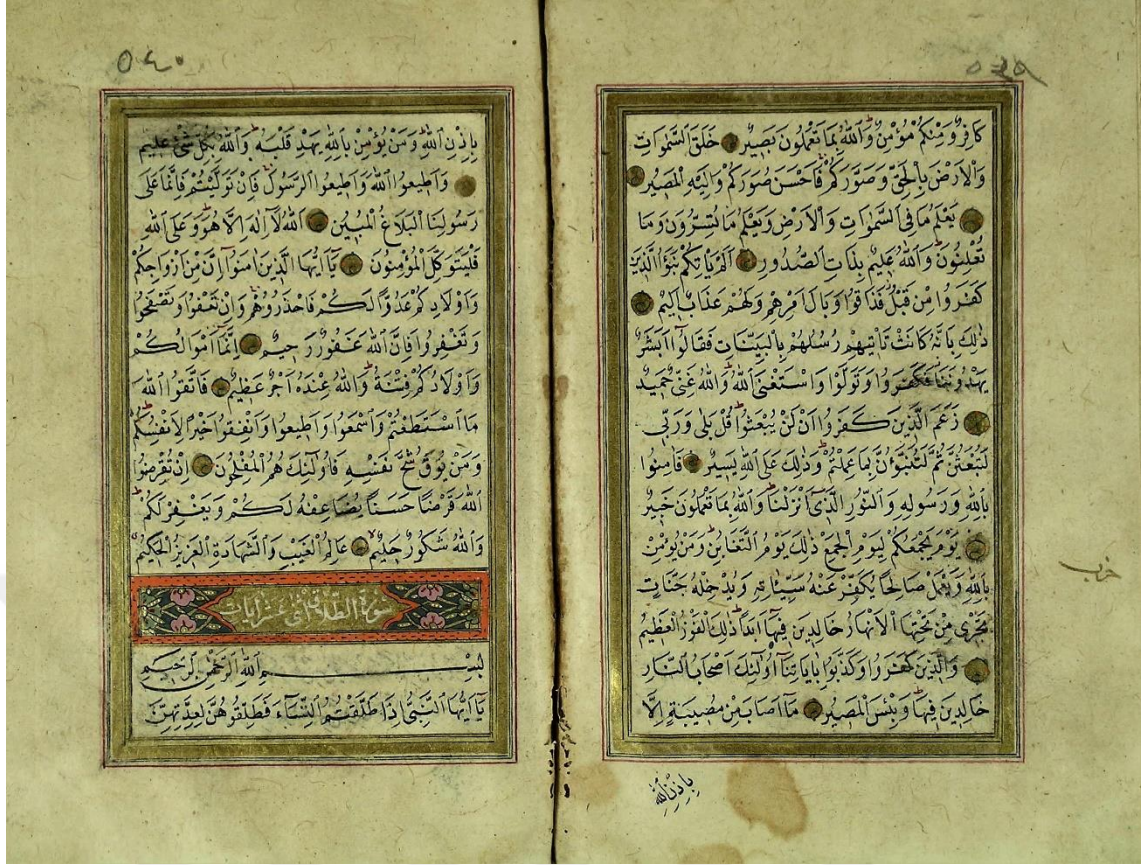 ٥٣٩
كَافِرٌ وَمِنْكُمْ مُؤْمِنٌ وَاللّٰهُ بِمَا تَعْمَلُونَ بَصِيرٌ خَلَقَ السَّمٰوَاتِ
وَالْاَرْضَ بِالْحَقِّ وَصَوَّرَكُمْ فَاَحْسَنَ صُوَرَكُمْ وَاِلَيْهِ الْمَصِيرُ
يَعْلَمُ مَا فِي السَّمٰوَاتِ وَالْاَرْضِ وَيَعْلَمُ مَا تُسِرُّونَ وَمَا
تُعْلِنُونَ وَاللّٰهُ عَلِيمٌ بِذَاتِ الصُّدُورِ اَلَمْ يَاْتِكُمْ نَبَؤُا الَّذِينَ
كَفَرُوا مِنْ قَبْلُ فَذَاقُوا وَبَالَ اَمْرِهِمْ وَلَهُمْ عَذَابٌ اَلِيمٌ
ذٰلِكَ بِاَنَّهُ كَانَتْ تَاْتِيهِمْ رُسُلُهُمْ بِالْبَيِّنَاتِ فَقَالُوا اَبَشَرٌ
يَهْدُونَنَا فَكَفَرُوا وَتَوَلَّوْا وَاسْتَغْنَى اللّٰهُ وَاللّٰهُ غَنِيٌّ حَمِيدٌ
زَعَمَ الَّذِينَ كَفَرُوا اَنْ لَنْ يُبْعَثُوا قُلْ بَلٰى وَرَبِّي
لَتُبْعَثُنَّ ثُمَّ لَتُنَبَّؤُنَّ بِمَا عَمِلْتُمْ وَذٰلِكَ عَلَى اللّٰهِ يَسِيرٌ فَاٰمِنُوا
بِاللّٰهِ وَرَسُولِهِ وَالنُّورِ الَّذِي اَنْزَلْنَا وَاللّٰهُ بِمَا تَعْمَلُونَ خَبِيرٌ
يَوْمَ يَجْمَعُكُمْ لِيَوْمِ الْجَمْعِ ذٰلِكَ يَوْمُ التَّغَابُنِ وَمَنْ يُؤْمِنْ
بِاللّٰهِ وَيَعْمَلْ صَالِحًا يُكَفِّرْ عَنْهُ سَيِّئَاتِهِ وَيُدْخِلْهُ جَنَّاتٍ
تَجْرِي مِنْ تَحْتِهَا الْاَنْهَارُ خَالِدِينَ فِيهَا اَبَدًا ذٰلِكَ الْفَوْزُ الْعَظِيمُ
وَالَّذِينَ كَفَرُوا وَكَذَّبُوا بِاٰيَاتِنَا اُولٰئِكَ اَصْحَابُ النَّارِ
خَالِدِينَ فِيهَا وَبِئْسَ الْمَصِيرُ مَا اَصَابَ مِنْ مُصِيبَةٍ اِلَّا
بِاِذْنِ اللّٰهِ
حزب
٥٤٠
بِاِذْنِ اللّٰهِ وَمَنْ يُؤْمِنْ بِاللّٰهِ يَهْدِ قَلْبَهُ وَاللّٰهُ بِكُلِّ شَيْءٍ عَلِيمٌ
وَاَطِيعُوا اللّٰهَ وَاَطِيعُوا الرَّسُولَ فَاِنْ تَوَلَّيْتُمْ فَاِنَّمَا عَلٰى
رَسُولِنَا الْبَلَاغُ الْمُبِينُ اَللّٰهُ لَا اِلٰهَ اِلَّا هُوَ وَعَلَى اللّٰهِ
فَلْيَتَوَكَّلِ الْمُؤْمِنُونَ يَا اَيُّهَا الَّذِينَ اٰمَنُوا اِنَّ مِنْ اَزْوَاجِكُمْ
وَاَوْلَادِكُمْ عَدُوًّا لَكُمْ فَاحْذَرُوهُمْ وَاِنْ تَعْفُوا وَتَصْفَحُوا
وَتَغْفِرُوا فَاِنَّ اللّٰهَ غَفُورٌ رَحِيمٌ اِنَّمَا اَمْوَالُكُمْ
وَاَوْلَادُكُمْ فِتْنَةٌ وَاللّٰهُ عِنْدَهُ اَجْرٌ عَظِيمٌ فَاتَّقُوا اللّٰهَ
مَا اسْتَطَعْتُمْ وَاسْمَعُوا وَاَطِيعُوا وَاَنْفِقُوا خَيْرًا لِاَنْفُسِكُمْ
وَمَنْ يُوقَ شُحَّ نَفْسِهِ فَاُولٰئِكَ هُمُ الْمُفْلِحُونَ اِنْ تُقْرِضُوا
اللّٰهَ قَرْضًا حَسَنًا يُضَاعِفْهُ لَكُمْ وَيَغْفِرْ لَكُمْ
وَاللّٰهُ شَكُورٌ حَلِيمٌ عَالِمُ الْغَيْبِ وَالشَّهَادَةِ الْعَزِيزُ الْحَكِيمُ
سورة الطلاق اثنى عشر ايات
بِسْمِ اللّٰهِ الرَّحْمٰنِ الرَّحِيمِ
يَا اَيُّهَا النَّبِيُّ اِذَا طَلَّقْتُمُ النِّسَاءَ فَطَلِّقُوهُنَّ لِعِدَّتِهِنَّ